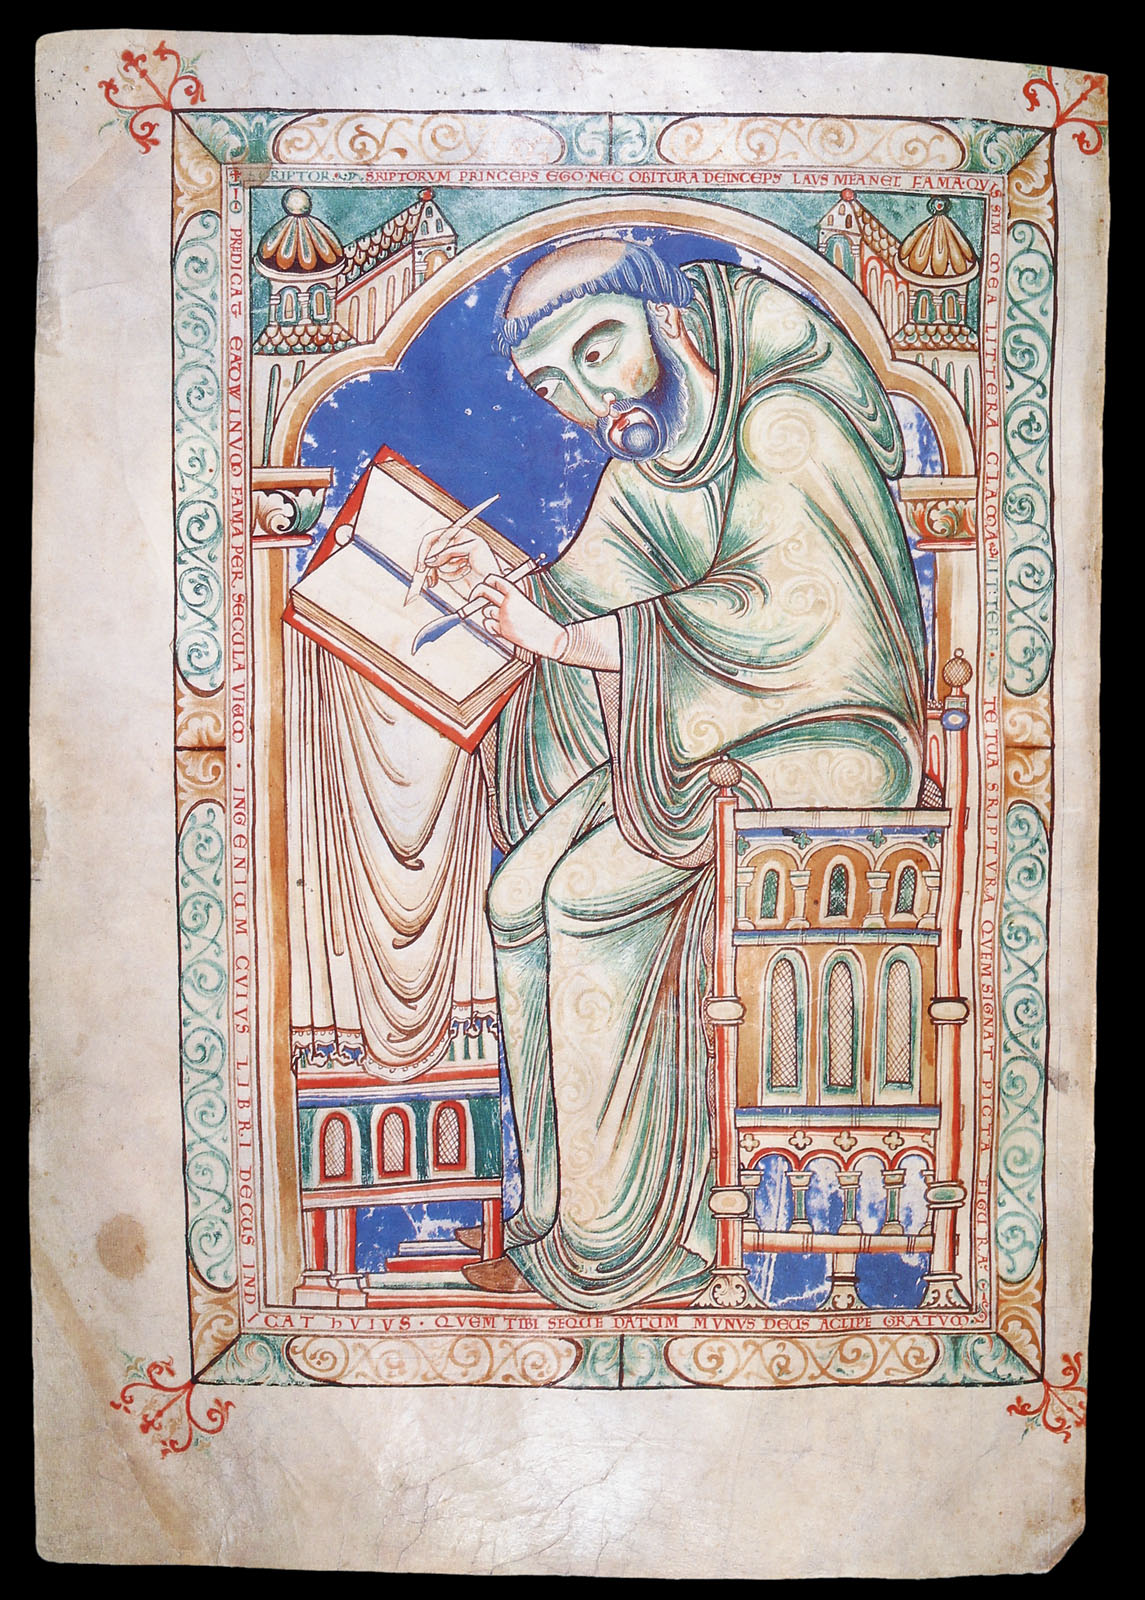 SRIPTORVM PRINCEPS EGO NEC OBITURA DEINCEPS LAVS MEA NEC FAMA · QVIS
SIM MEA LITTERA CLAMA · LITTER · TE TUA SRIPTVRA QVEM SIGNAT PICTA FIGURA
PREDICAT EADWINVM FAMA PER SECULA VIVUM · INGENIUM CVIVS LIBRI DECUS IND
ICAT HVIVS · QVEM TIBI SEQUE DATUM MVNUS DEUS ACCIPE GRATVM